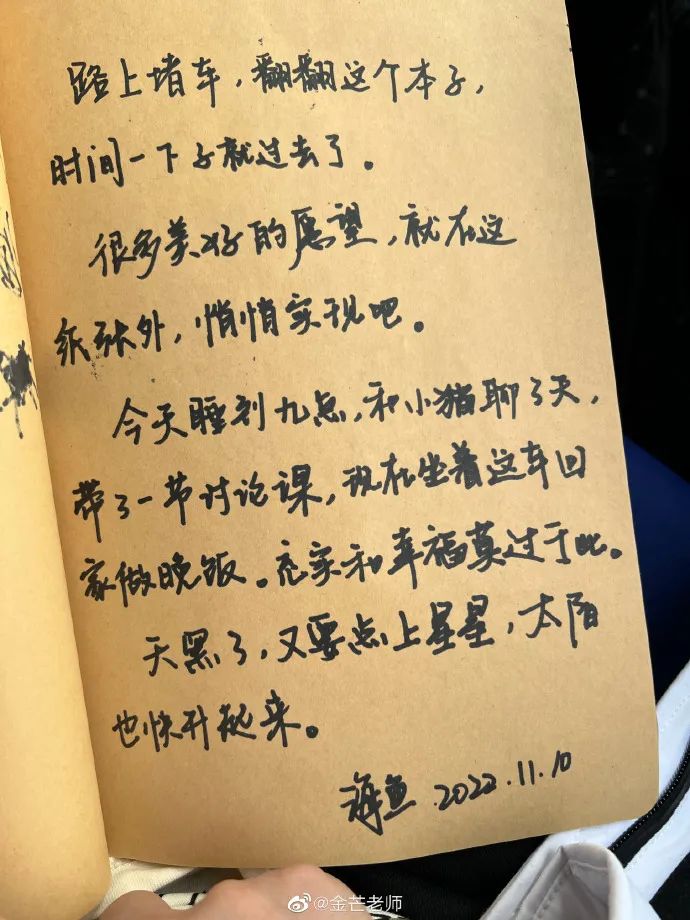 路上堵车，翻翻这个本子，
时间一下子就过去了。
很多美好的愿望，就在这
纸张外，悄悄实现吧。
今天睡到九点，和小猫聊了天，
带了一节讨论课，现在坐着这车回
家做晚饭。充实和幸福莫过于此。
天黑了，又要点上星星，太阳
也快升起来。
海鱼 2022.11.10
@金芒老师